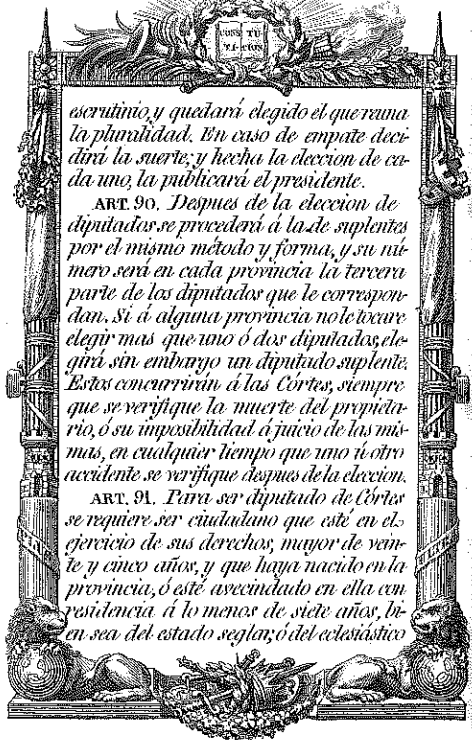 CONSTU
TICION
escrutinio, y quedará elegido el que reuna
la pluralidad. En caso de empate deci-
dirá la suerte; y hecha la eleccion de ca-
da uno, la publicará el presidente.
ART. 90. Despues de la eleccion de
diputados se procederá á la de suplentes
por el mismo método y forma, y su nú-
mero será en cada provincia la tercera
parte de los diputados que le correspon-
dan. Si á alguna provincia no le tocare
elegir mas que uno ó dos diputados, ele-
girá sin embargo un diputado suplente.
Estos concurrirán á las Córtes, siempre
que se verifique la muerte del propieta-
rio, ó su imposibilidad á juicio de las mis-
mas, en cualquier tiempo que uno ú otro
accidente se verifique despues de la eleccion.
ART. 91. Para ser diputado de Córtes
se requiere ser ciudadano que esté en el
ejercicio de sus derechos, mayor de vein-
te y cinco años, y que haya nacido en la
provincia, ó esté avecindado en ella con
residencia á lo menos de siete años, bi-
en sea del estado seglar, ó del eclesiástico